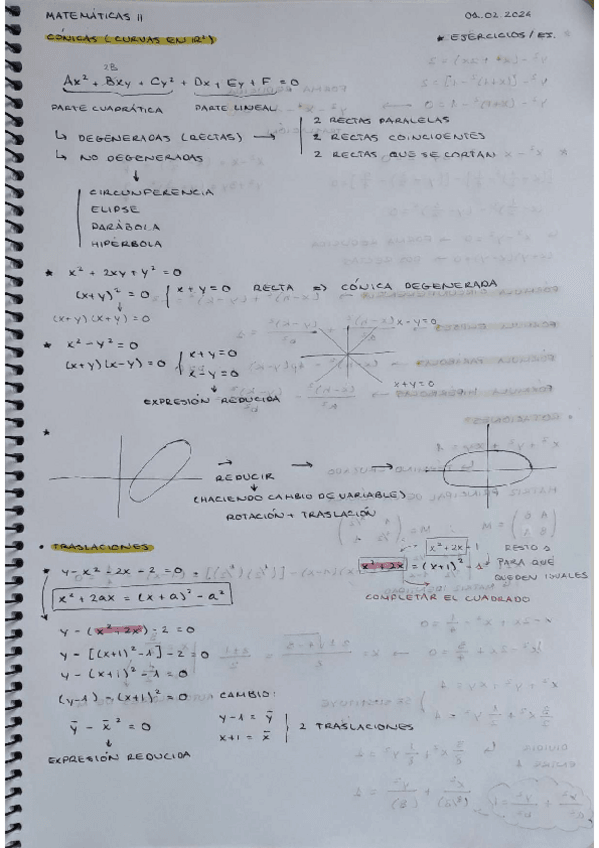 MATEMÁTICAS II 01.02.2024
CÓNICAS (CURVAS EN R²) * EJERCICIOS/EJ.
2B
Ax² + Bxy + Cy² + Dx + Ey + F = 0
PARTE CUADRÁTICA PARTE LINEAL
↳ DEGENERADAS (RECTAS) → 2 RECTAS PARALELAS
2 RECTAS COINCIDENTES
2 RECTAS QUE SE CORTAN
↳ NO DEGENERADAS
↓
CIRCUNFERENCIA
ELIPSE
PARÁBOLA
HIPÉRBOLA
* x² + 2xy + y² = 0
(x+y)² = 0 { x + y = 0 RECTA => CÓNICA DEGENERADA
(x+y)(x+y) = 0
* x² - y² = 0
(x+y)(x-y) = 0 { x+y = 0
x-y = 0
↓
EXPRESIÓN REDUCIDA
x-y=0
x+y=0
*
→ REDUCIR → →
↓
(HACIENDO CAMBIO DE VARIABLE)
ROTACIÓN + TRASLACIÓN
• TRASLACIONES
* y - x² - 2x - 2 = 0
x² + 2ax = (x+a)² - a²
x² + 2x - 1 RESTO 1
x² + 2x = (x+1)² - 1 → PARA QUE
QUEDEN IGUALES
COMPLETAR EL CUADRADO
y - (x² + 2x) - 2 = 0
y - [(x+1)² - 1] - 2 = 0
y - (x+1)² - 1 = 0
(y-1) - (x+1)² = 0 CAMBIO:
ȳ - x̄² = 0 y-1 = ȳ
x+1 = x̄ } 2 TRASLACIONES
↓
EXPRESIÓN REDUCIDA